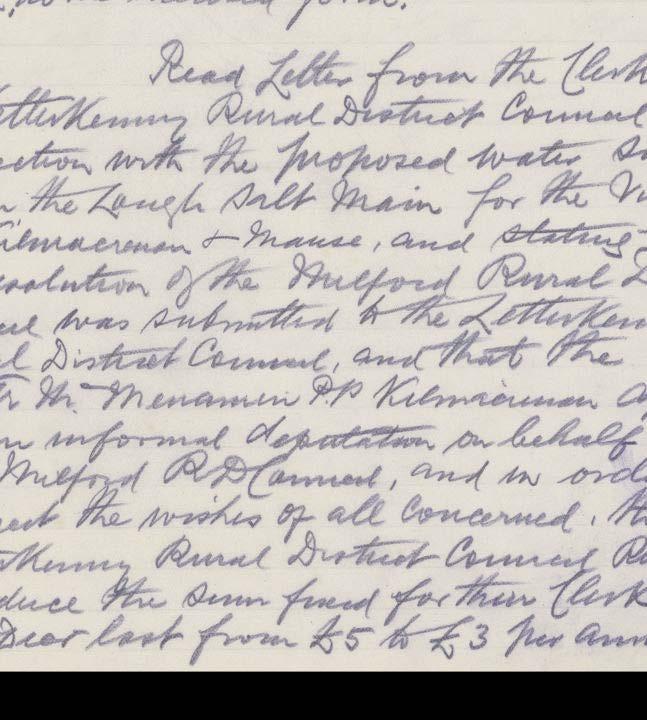 Read Letter from the Clerk
etterKenny Rural District Council
ection with the proposed water Su
the Lough Salt Main for the Vi
ilmacrenan & Mause, and stating
esolution of the Milford Rural D
was submitted to the LetterKen
l District Council, and that the
Fr Mc Menamin P.P. Kilmacrenan
n informal deputation on behalf
Milford R D Council, and in orde
the wishes of all concerned, th
rKenny Rural District Council
duce the sum fixed for their Clerk
Decr last from £5 to £3 per ann